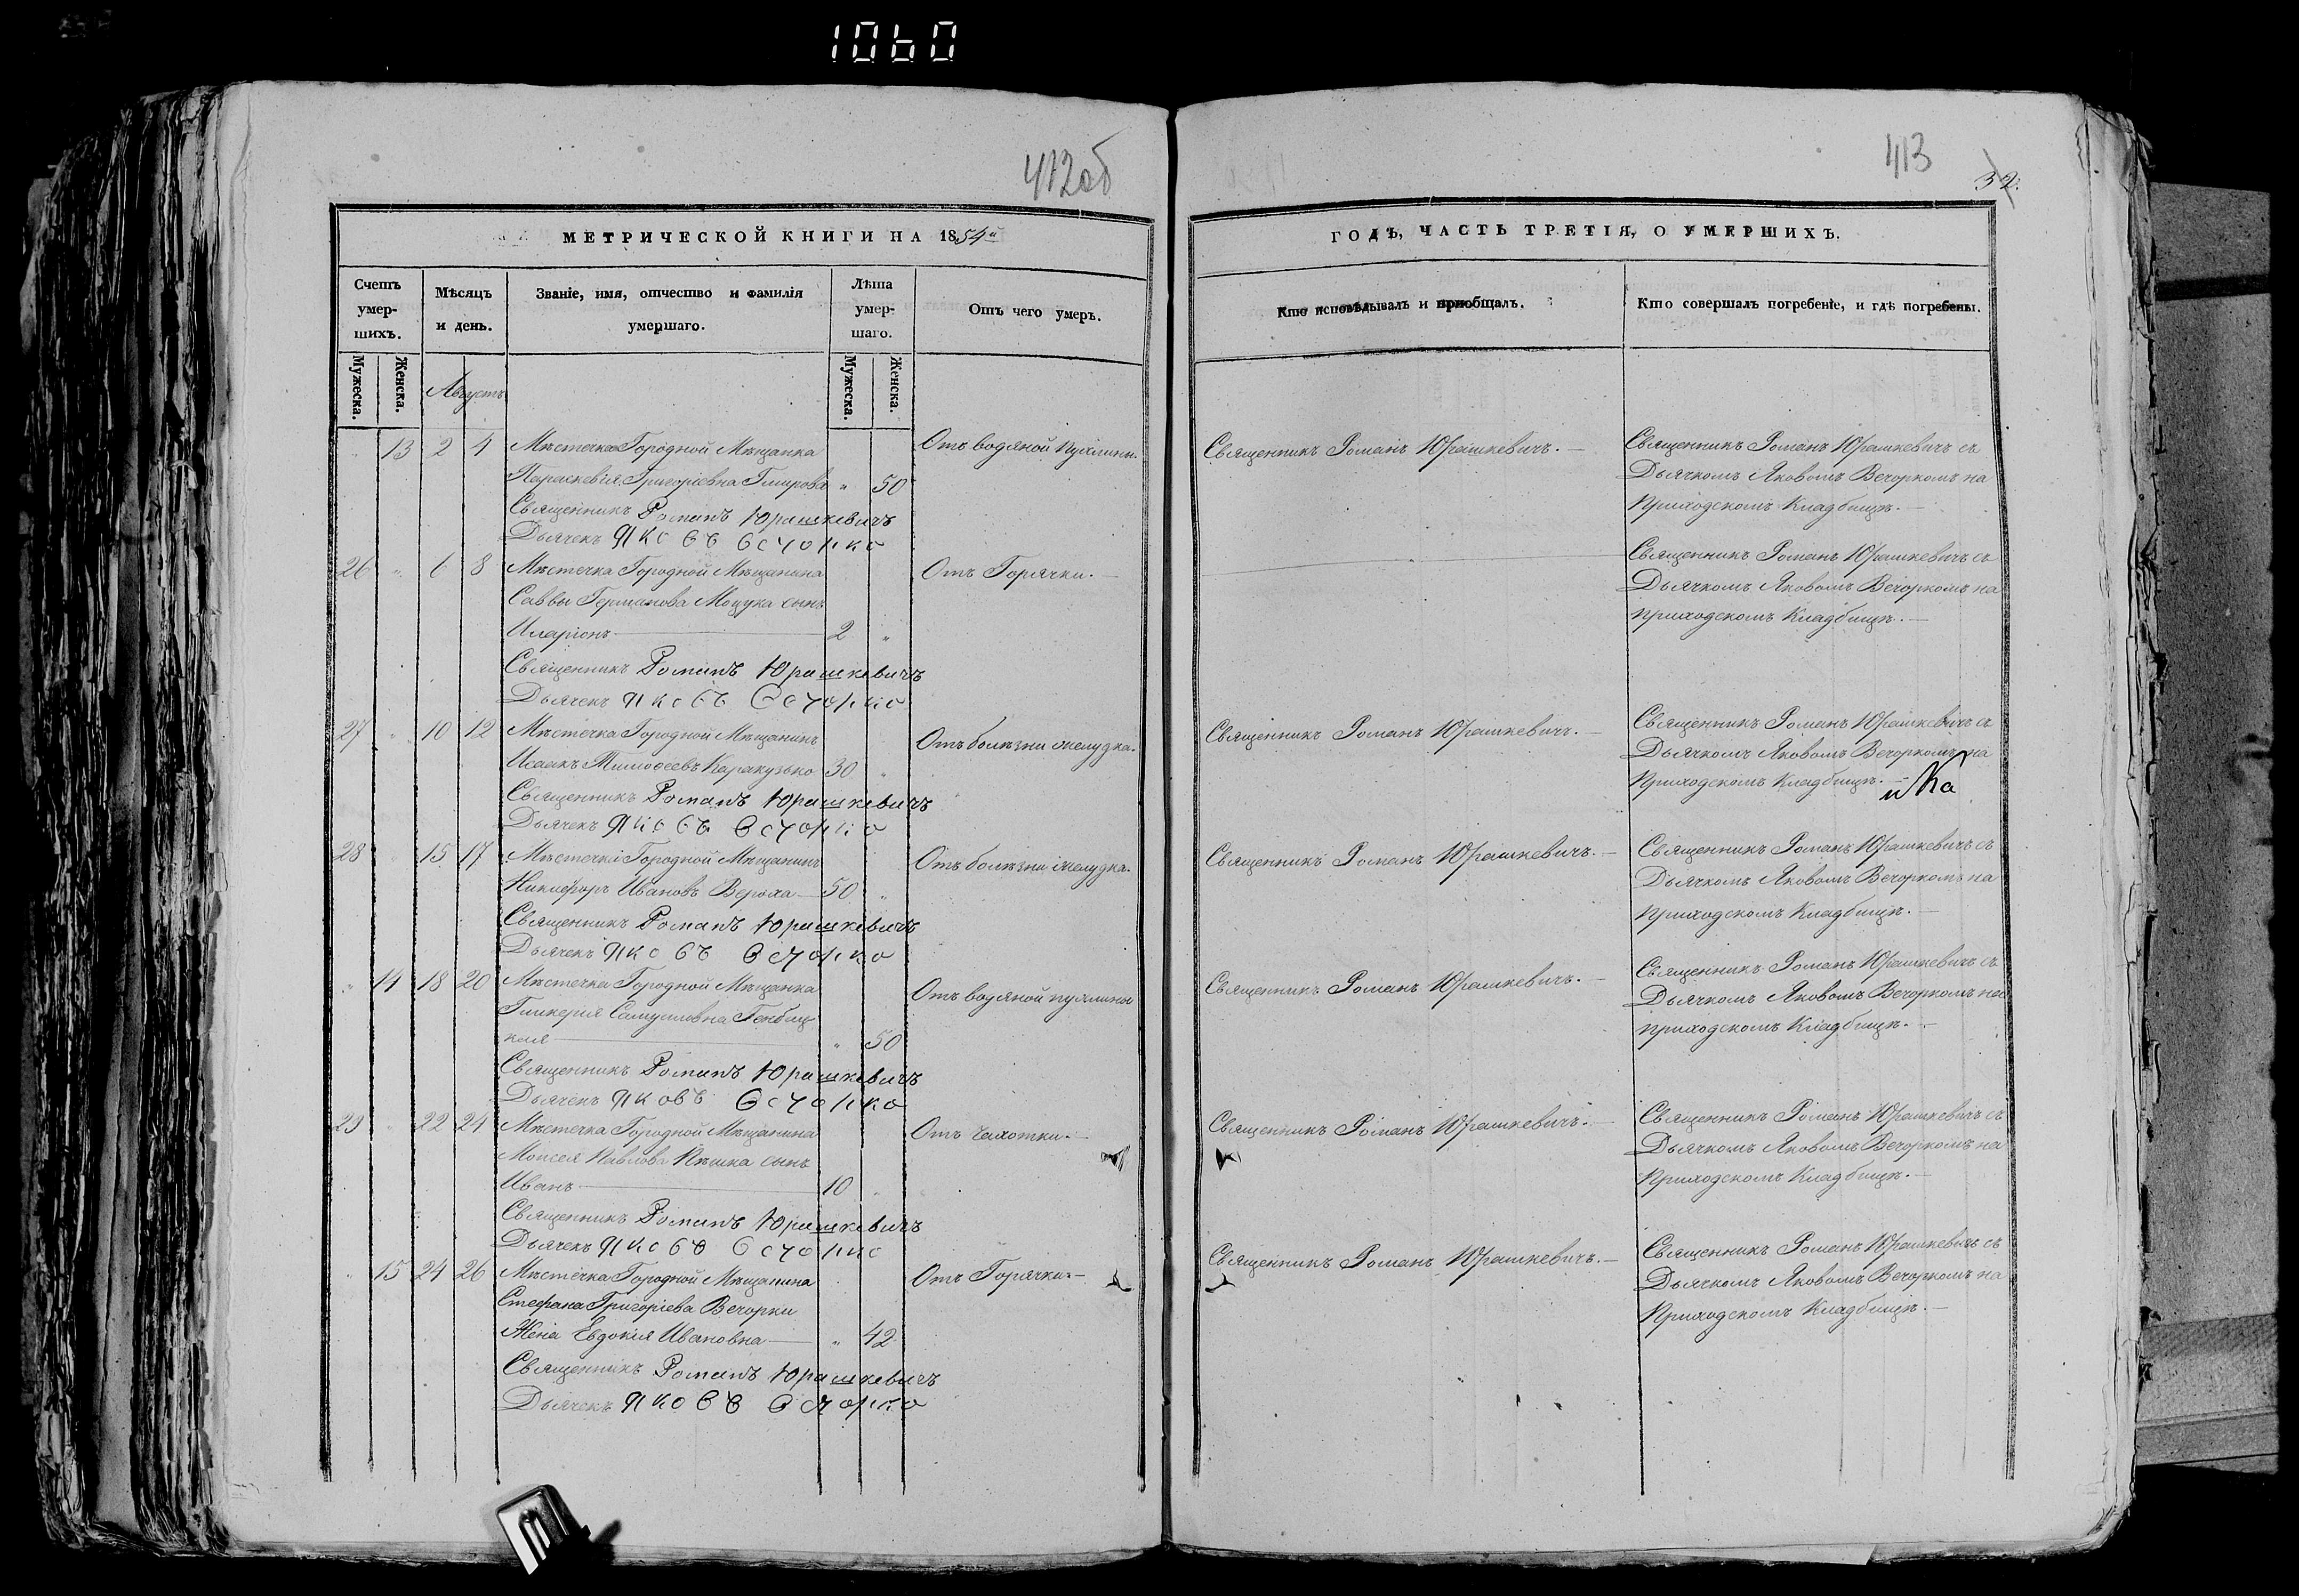 1060
412об
МЕТРИЧЕСКОЙ КНИГИ НА 1854й
Счетъ умер-шихъ.
Мѣсяцъ и день.
Званіе, имя, отчество и фамилія умершаго.
Лѣта умер-шаго.
Отъ чего умеръ.
Мужеска.
Женска.
Августъ
Мужеска.
Женска.
13 2 4 Мѣстечка Городной Мѣщанка Отъ водяной пухлины.
Параскевія Григоріевна 50
Священникъ Романъ Юрашкевичъ
Дьячекъ Яковъ Вечорко
26 6 8 Мѣстечка Городной Мѣщанина Отъ Горячки.
Саввы Германова Моцука сынъ
Иларіонъ 2
Священникъ Романъ Юрашкевичъ
Дьячекъ Яковъ Вечорко
27 10 12 Мѣстечка Городной Мѣщанинъ Отъ болѣзни желудка.
Исаакъ Тимоѳеевъ 30
Священникъ Романъ Юрашкевичъ
Дьячекъ Яковъ Вечорко
28 15 17 Мѣстечка Городной Мѣщанинъ Отъ болѣзни желудка.
Никифоръ Ивановъ 50
Священникъ Романъ Юрашкевичъ
Дьячекъ Яковъ Вечорко
14 18 20 Мѣстечка Городной Мѣщанка Отъ водяной пухлины
Гликерія Самуиловна Генбиц-
кая 50
Священникъ Романъ Юрашкевичъ
Дьячекъ Яковъ Вечорко
29 22 24 Мѣстечка Городной Мѣщанина Отъ чахотки.
Моисея Павлова сынъ
Иванъ 10
Священникъ Романъ Юрашкевичъ
Дьячекъ Яковъ Вечорко
15 24 26 Мѣстечка Городной Мѣщанина Отъ Горячки.
Стефана Григоріева Вечорки
Жена Евдокія Ивановна 42
Священникъ Романъ Юрашкевичъ
Дьячекъ Яковъ Вечорко
413
32.
ГОДЪ, ЧАСТЬ ТРЕТІЯ, О УМЕРШИХЪ.
Кто исповѣдывалъ и пріобщалъ.
Кто совершалъ погребеніе, и гдѣ погребены.
Священникъ Романъ Юрашкевичъ. Священникъ Романъ Юрашкевичъ съ
Дьячкомъ Яковомъ Вечоркомъ на
Приходскомъ Кладбищѣ.
Священникъ Романъ Юрашкевичъ съ
Дьячкомъ Яковомъ Вечоркомъ на
приходскомъ Кладбищѣ.
Священникъ Романъ Юрашкевичъ. Священникъ Романъ Юрашкевичъ съ
Дьячкомъ Яковомъ Вечоркомъ на
Приходскомъ Кладбищѣ.
Священникъ Романъ Юрашкевичъ. Священникъ Романъ Юрашкевичъ съ
Дьячкомъ Яковомъ Вечоркомъ на
приходскомъ Кладбищѣ.
Священникъ Романъ Юрашкевичъ. Священникъ Романъ Юрашкевичъ съ
Дьячкомъ Яковомъ Вечоркомъ на
приходскомъ Кладбищѣ.
Священникъ Романъ Юрашкевичъ. Священникъ Романъ Юрашкевичъ съ
Дьячкомъ Яковомъ Вечоркомъ на
Приходскомъ Кладбищѣ.
Священникъ Романъ Юрашкевичъ. Священникъ Романъ Юрашкевичъ съ
Дьячкомъ Яковомъ Вечоркомъ на
Приходскомъ Кладбищѣ.